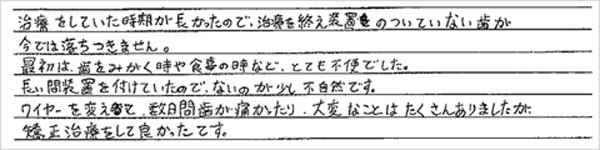 治療をしていた時期が長かったので、治療を終え装置のついていない歯が
今では落ちつきません。
最初は、歯をみがく時や食事の時など、とても不便でした。
長い間装置を付けていたので、ないのが少し不自然です。
ワイヤーを変えて、数日間歯が痛かったり、大変なことはたくさんありましたが、
矯正治療をして良かったです。